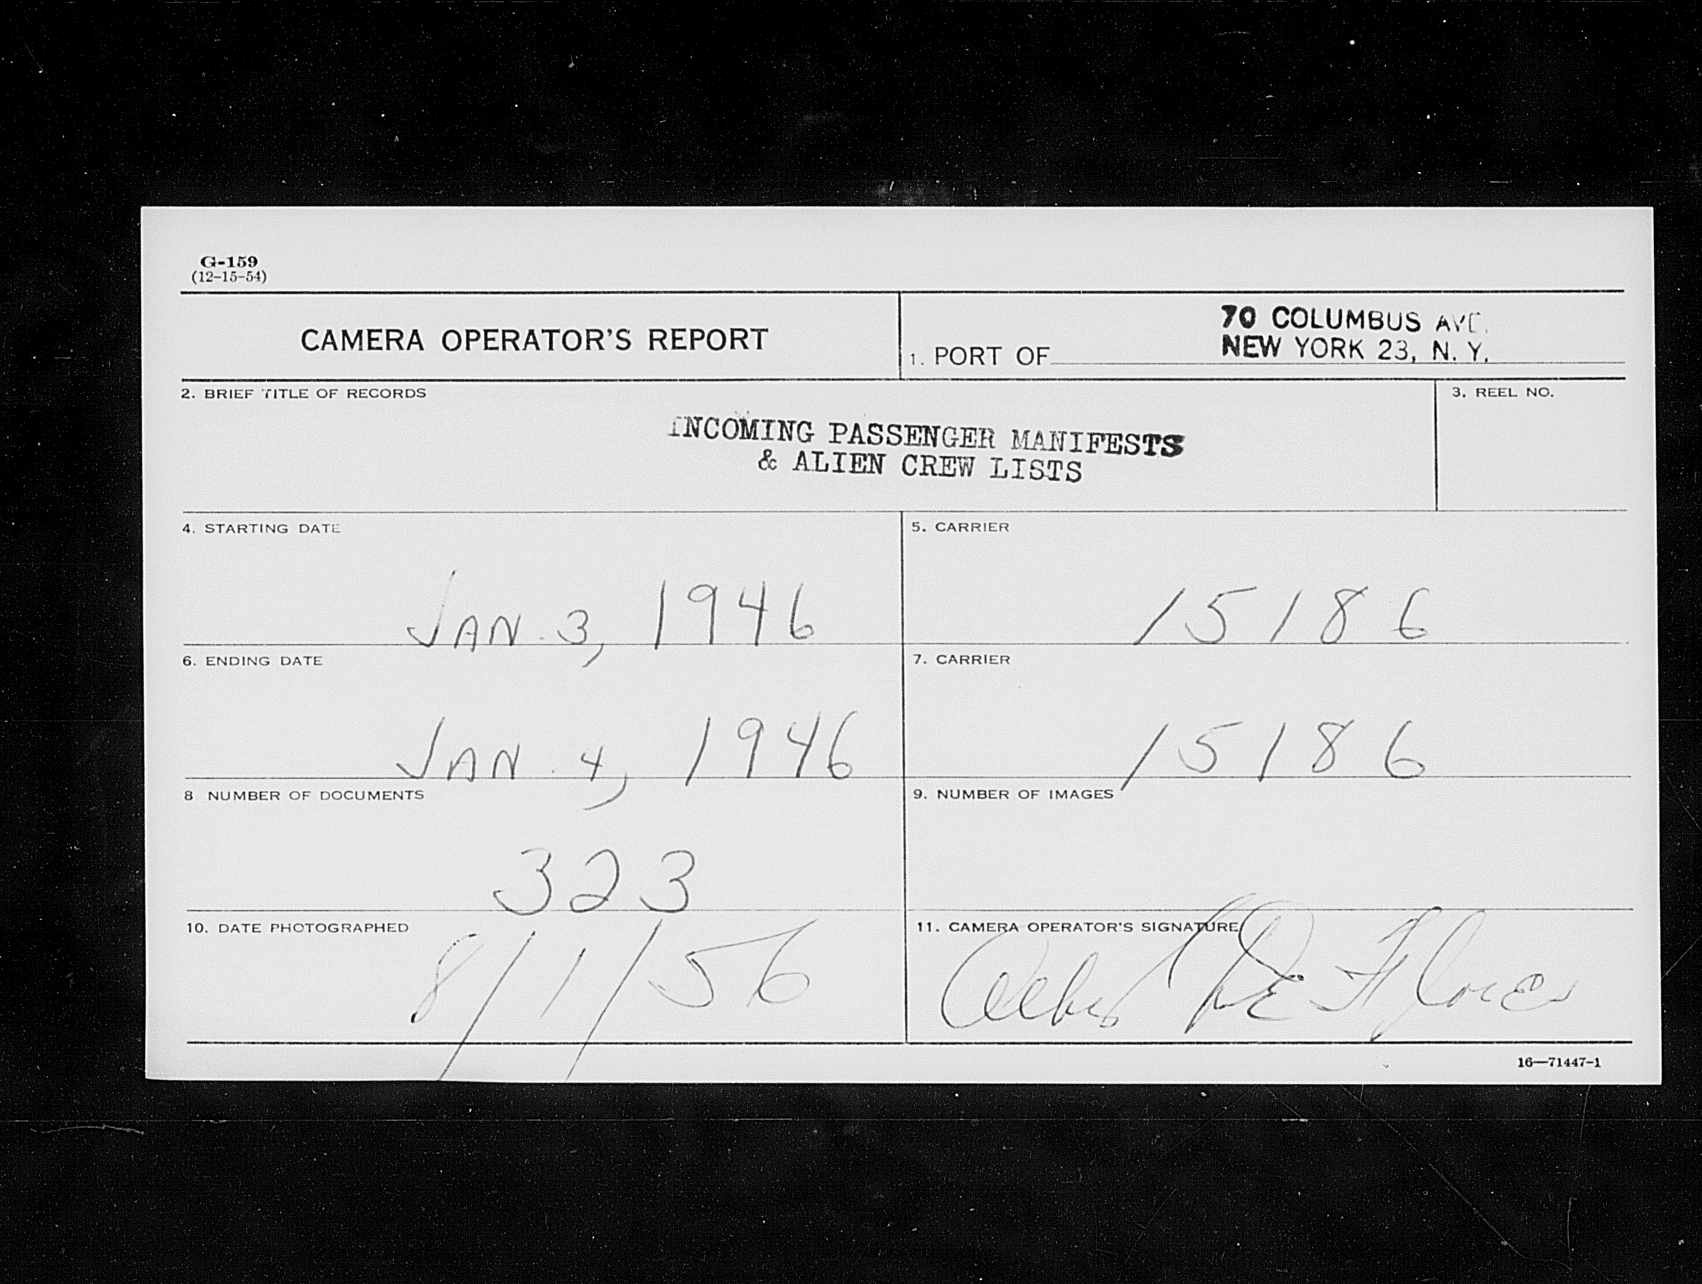 G-159
(12-15-54)
CAMERA OPERATOR'S REPORT
70 COLUMBUS AVE.
1. PORT OF NEW YORK 23, N. Y.
2. BRIEF TITLE OF RECORDS
3. REEL NO.
INCOMING PASSENGER MANIFESTS
& ALIEN CREW LISTS
4. STARTING DATE
5. CARRIER
JAN. 3, 1946
15186
6. ENDING DATE
7. CARRIER
JAN. 4, 1946
15186
8 NUMBER OF DOCUMENTS
9. NUMBER OF IMAGES
323
10. DATE PHOTOGRAPHED
11. CAMERA OPERATOR'S SIGNATURE
8/1/56
De Flores
16—71447-1